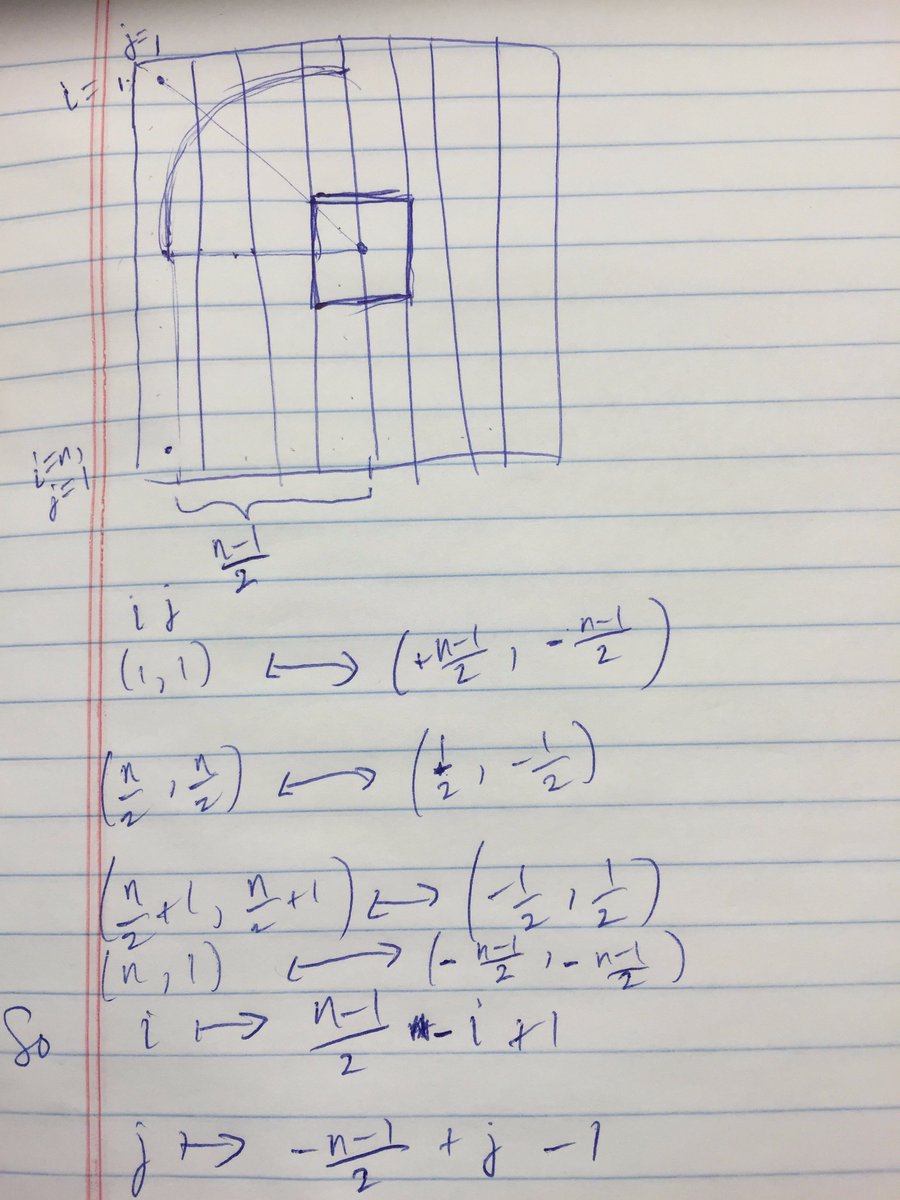 j=1
i= 1
i=n,
j=1
n-1
2
i j
(1,1) ↔ (+n-1/2, -n-1/2)
(n/2, n/2) ↔ (1/2, -1/2)
(n/2+1, n/2+1) ↔ (-1/2, 1/2)
(n,1) ↔ (-n-1/2, -n-1/2)
So i ↦ n-1/2 - i +1
j ↦ -n-1/2 + j -1